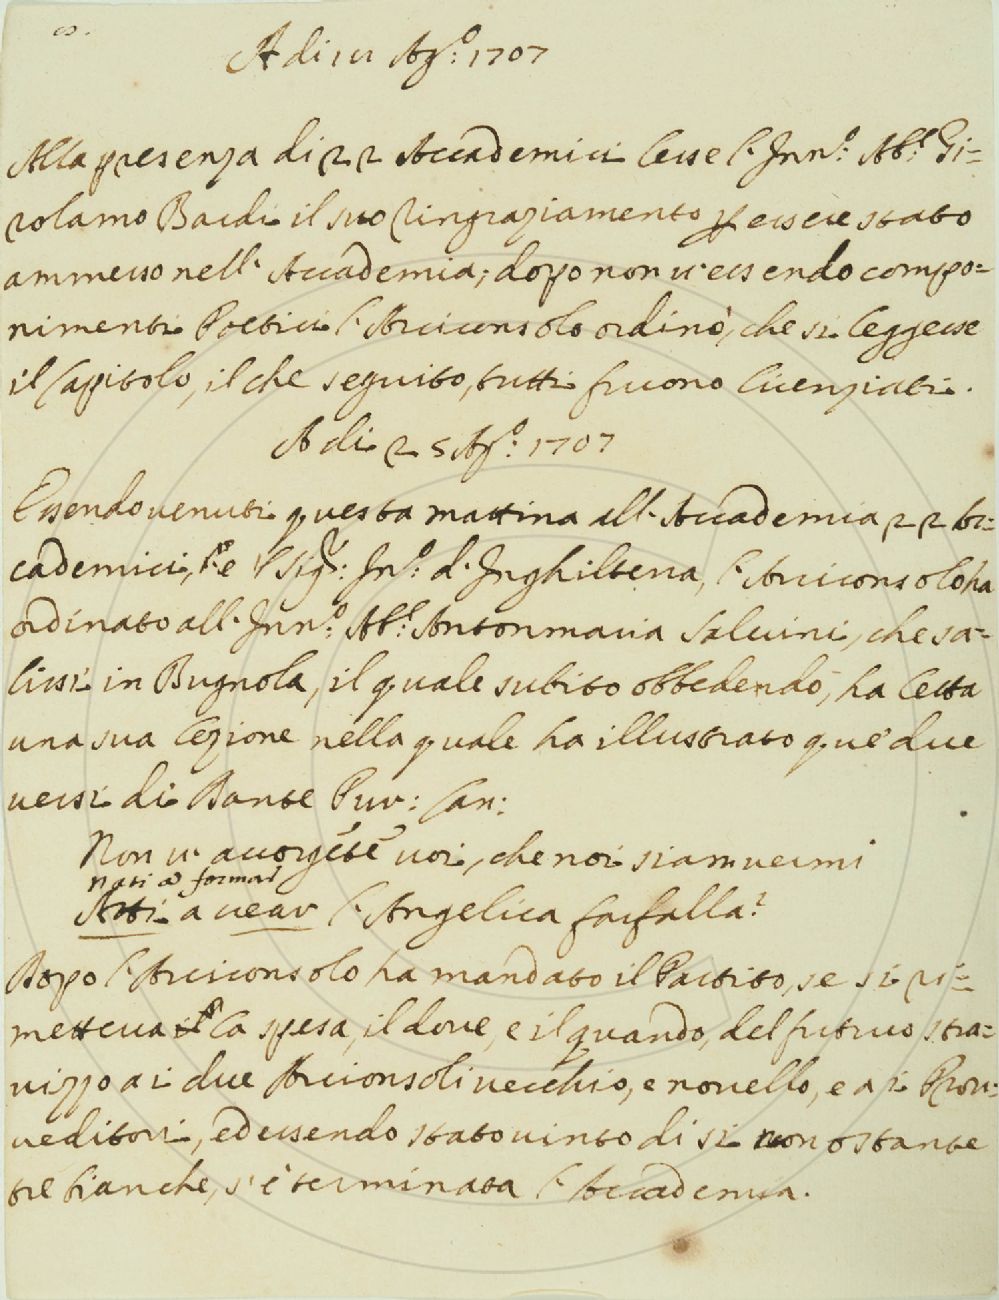 A di 11 Ag.º 1707
Alla presenza di 22 Accademici lesse l'Inn.º Ab.e Gi=
rolamo Bardi il suo ringraziamento p essere stato
ammesso nell'Accademia; dopo non v'essendo compo=
nimenti Poetici l'Arciconsolo ordinò, che si leggesse
il Capitolo, il che seguito, tutti furono licenziati.
A di 25 Ag.º 1707
Essendo venuti questa mattina all'Accademia 22 Ac=
cademici, e l'Sig.r In.º d'Inghilterra, l'Arciconsolo ha
ordinato all'Inn.º Ab.e Antonmaria Salvini, che sa=
lissi in Bugnola, il quale subito obbedendo, ha letta
una sua lezione nella quale ha illustrato que' due
versi di Dante Pur: Can:
Non v'accorgete voi, che noi siam vermi
Nati a formar
Atti a uear l'Angelica farfalla?
Dopo l'Arciconsolo ha mandato il Partito, se si ri=
metteva la spesa, il dove, e il quando, del futuro stra=
vizzo a i due Arciconsoli vecchio, e novello, e a i Prov=
veditori, ed essendo stato vinto di si non ostante
tre bianche, s'è terminata l'Accademia.